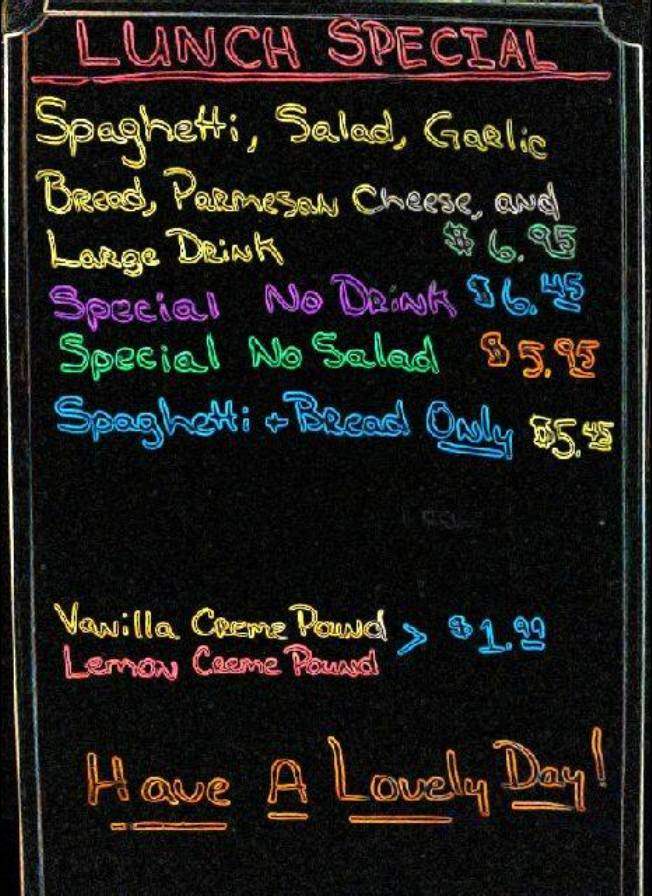 LUNCH SPECIAL
Spaghetti, Salad, Garlic
Bread, Parmesan Cheese, and
Large Drink $6.95
Special No Drink $6.45
Special No Salad $5.95
Spaghetti + Bread Only $5.45
Vanilla Creme Pound > $1.99
Lemon Creme Pound
Have A Lovely Day!